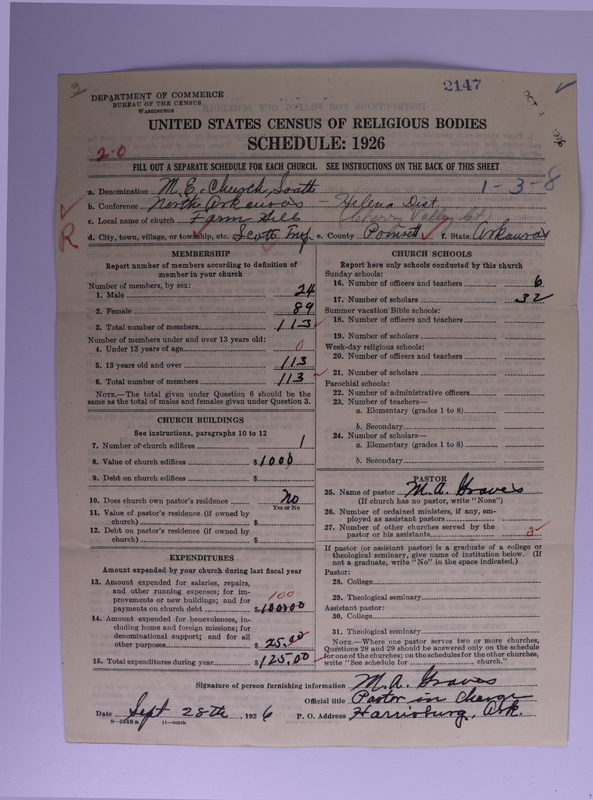 2
2147
OCT 4 1926
DEPARTMENT OF COMMERCE
BUREAU OF THE CENSUS
WASHINGTON
UNITED STATES CENSUS OF RELIGIOUS BODIES
SCHEDULE: 1926
2-0
FILL OUT A SEPARATE SCHEDULE FOR EACH CHURCH. SEE INSTRUCTIONS ON THE BACK OF THIS SHEET
a. Denomination M. E. Church, South 1-3-8
b. Conference North Arkansas - Helena Dist
c. Local name of church Farm Hill (Cherry Valley Ct)
R d. City, town, village, or township, etc. Scott Twp e. County Poinsett f. State Arkansas
MEMBERSHIP
Report number of members according to definition of member in your church
Number of members, by sex:
1. Male 24
2. Female 89
3. Total number of members 113
Number of members under and over 13 years old:
4. Under 13 years of age 0
5. 13 years old and over 113
6. Total number of members 113
NOTE.—The total given under Question 6 should be the same as the total of males and females given under Question 3.
CHURCH BUILDINGS
See instructions, paragraphs 10 to 12
7. Number of church edifices 1
8. Value of church edifices $1000
9. Debt on church edifices $
10. Does church own pastor's residence No
Yes or No
11. Value of pastor's residence (if owned by church) $
12. Debt on pastor's residence (if owned by church) $
EXPENDITURES
Amount expended by your church during last fiscal year
13. Amount expended for salaries, repairs, and other running expenses; for improvements or new buildings; and for payments on church debt $100.00 100
14. Amount expended for benevolences, including home and foreign missions; for denominational support; and for all other purposes $25.00
15. Total expenditures during year $125.00
CHURCH SCHOOLS
Report here only schools conducted by this church
Sunday schools:
16. Number of officers and teachers 6
17. Number of scholars 32
Summer vacation Bible schools:
18. Number of officers and teachers
19. Number of scholars
Week-day religious schools:
20. Number of officers and teachers
21. Number of scholars
Parochial schools:
22. Number of administrative officers
23. Number of teachers—
a. Elementary (grades 1 to 8)
b. Secondary
24. Number of scholars—
a. Elementary (grades 1 to 8)
b. Secondary
PASTOR
25. Name of pastor M. A. Graves
(If church has no pastor, write "None")
26. Number of ordained ministers, if any, employed as assistant pastors
27. Number of other churches served by the pastor or his assistants
If pastor (or assistant pastor) is a graduate of a college or theological seminary, give name of institution below. (If not a graduate, write "No" in the space indicated.)
Pastor:
28. College
29. Theological seminary
Assistant pastor:
30. College
31. Theological seminary
NOTE.—Where one pastor serves two or more churches, Questions 28 and 29 should be answered only on the schedule for one of the churches; on the schedules for the other churches, write "See schedule for church."
Signature of person furnishing information M. A. Graves
Official title Pastor in Charge
Date Sept 28th, 1926 P. O. Address Harrisburg, Ark.